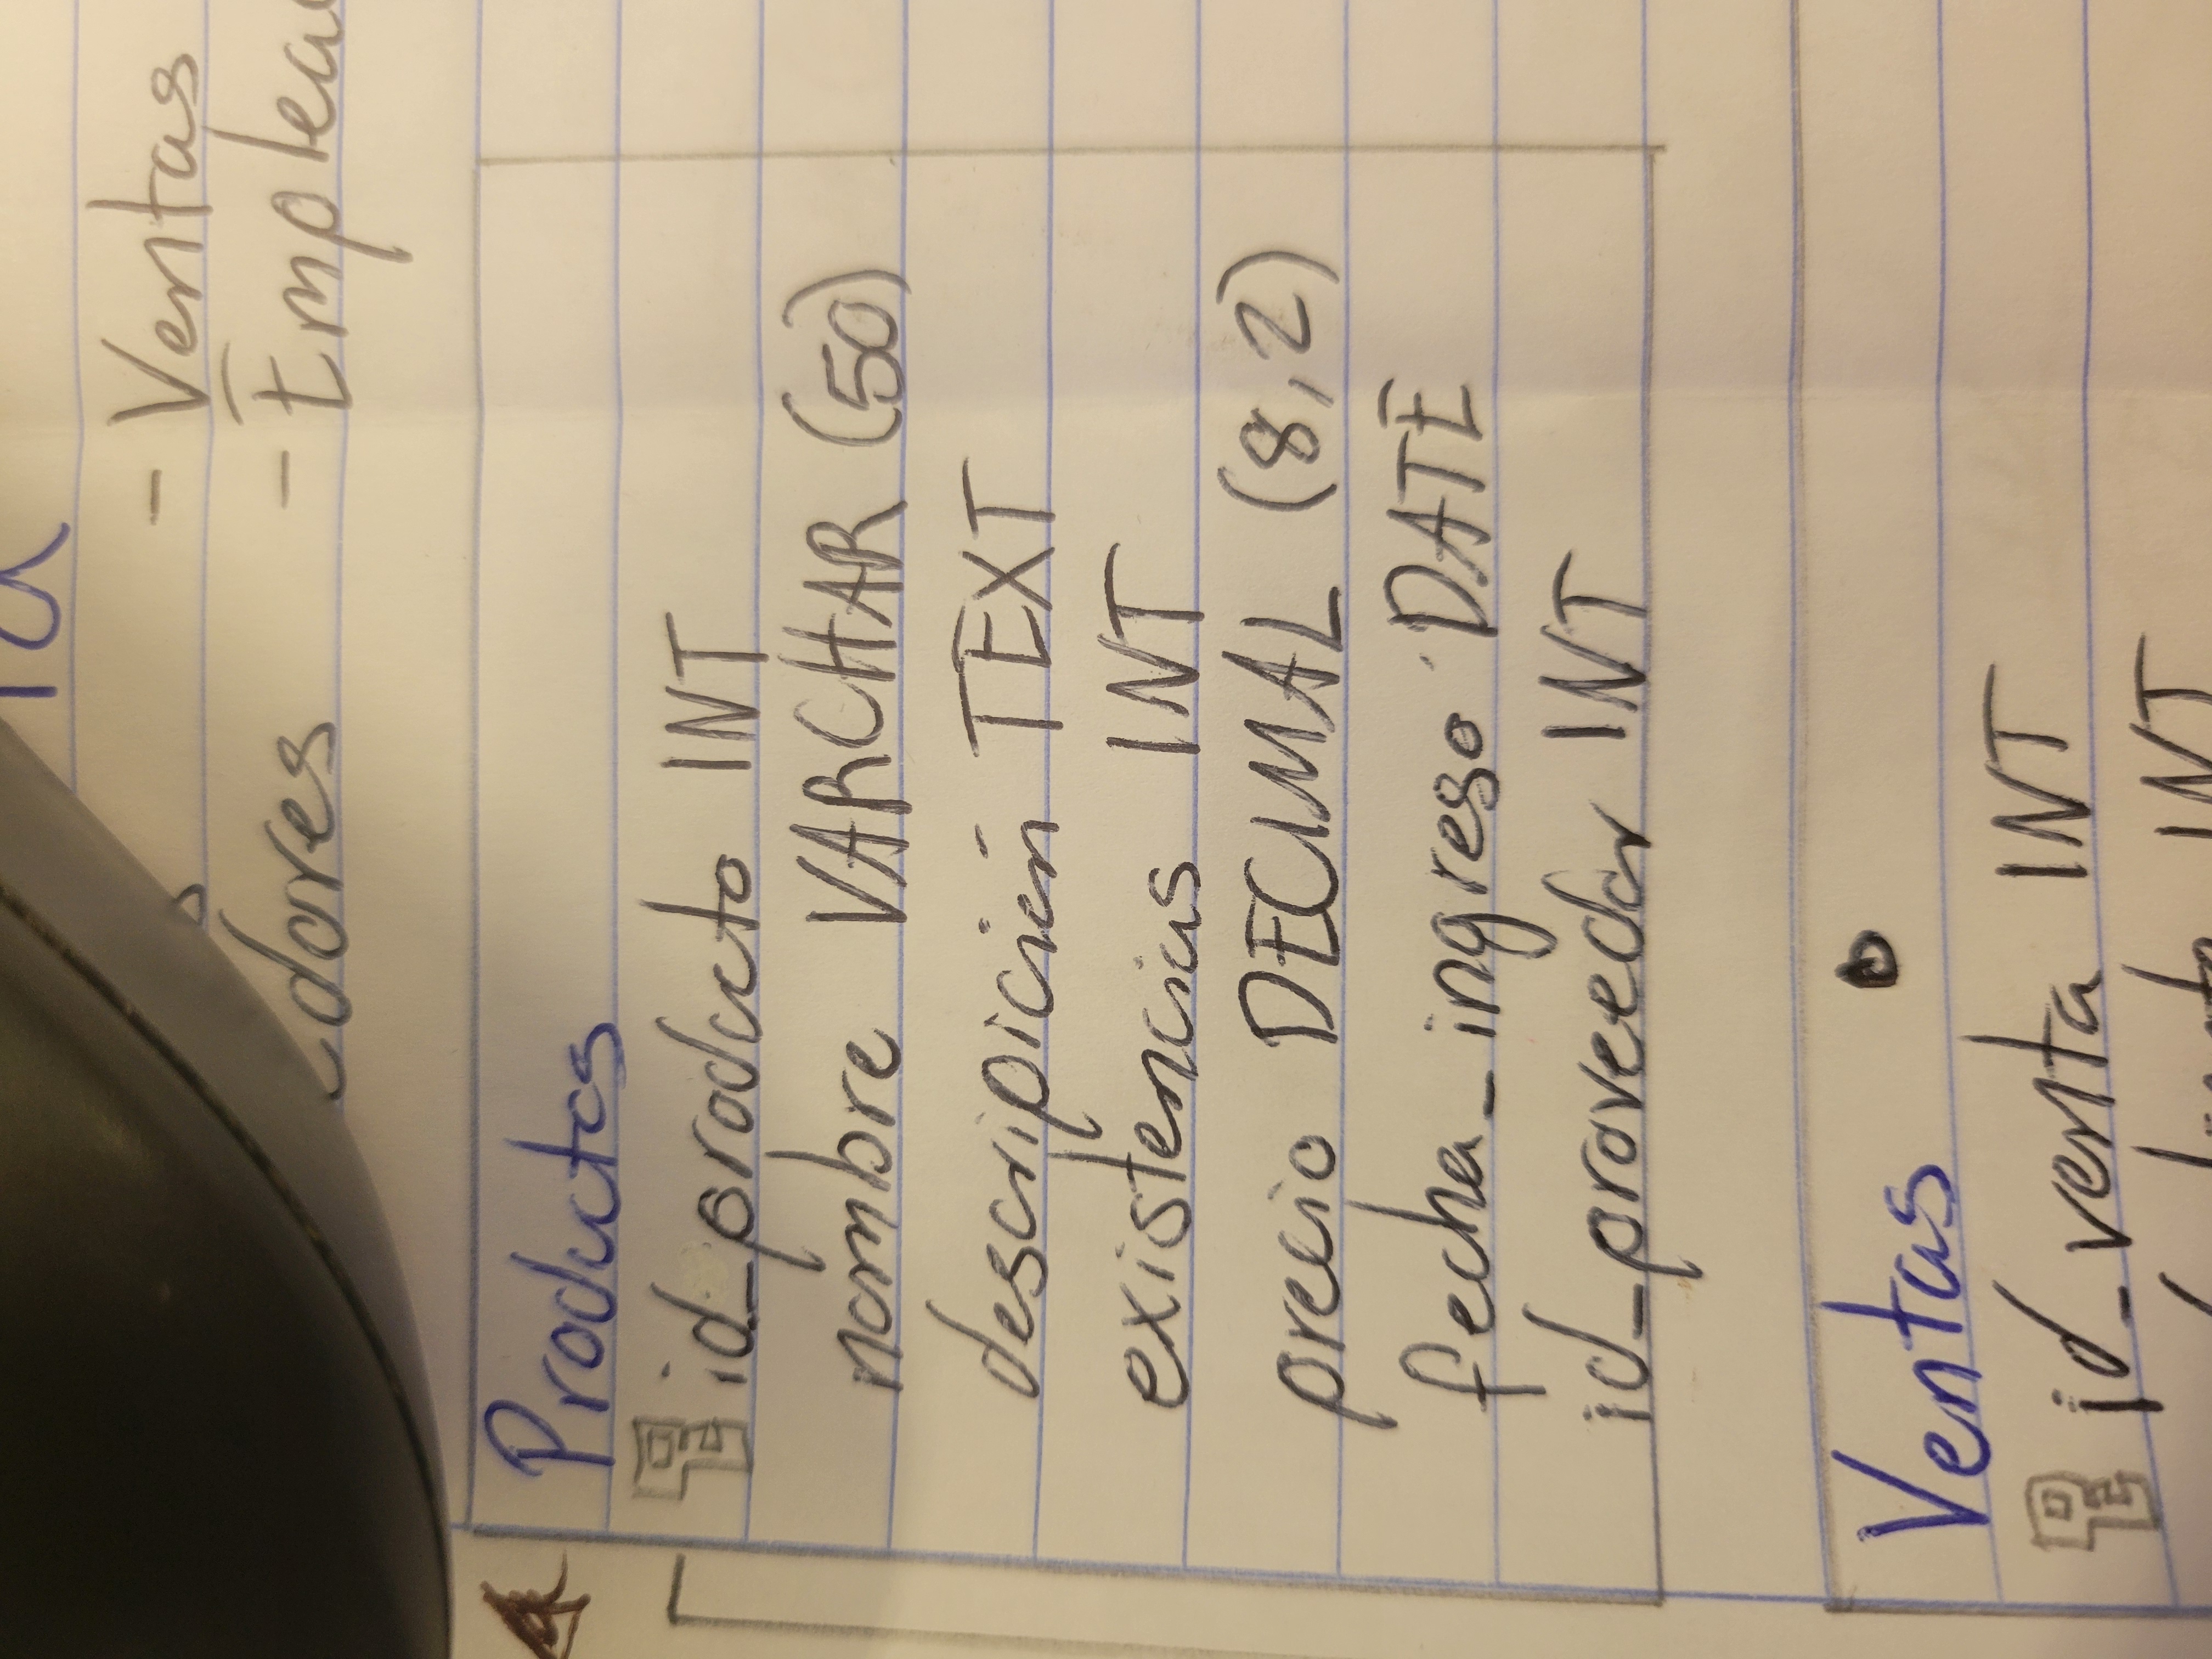 - Ventas
Productos
id_producto INT
nombre VARCHAR (50)
descripición TEXT
existencias INT
precio DECIMAL (8,2)
fecha_ingreso DATE
id_proveedor INT
Ventas
id_venta INT
INT